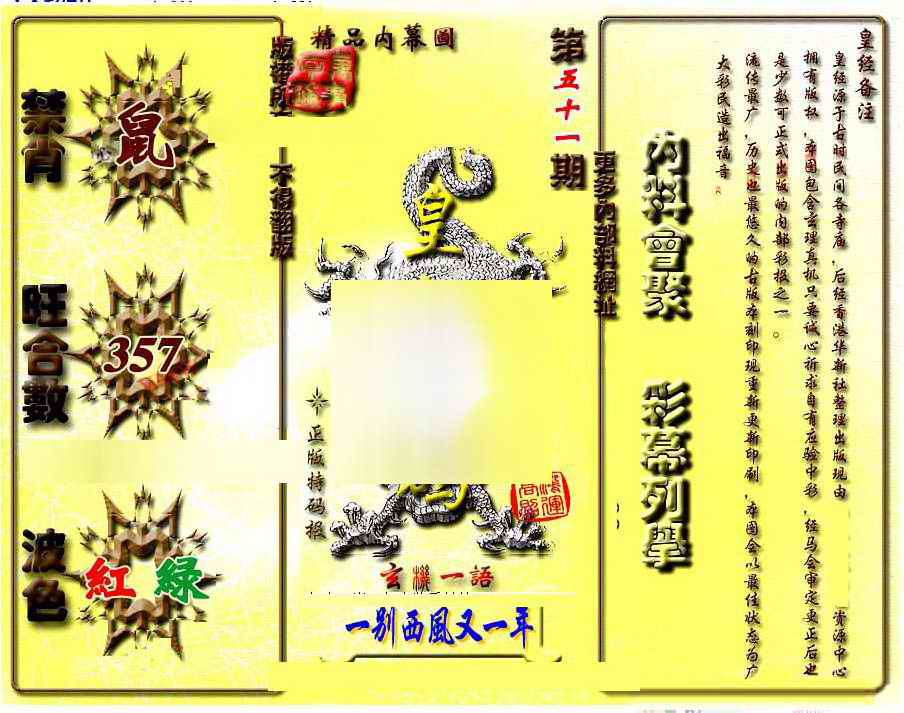 精品内幕圖
第五十一期
禁肖
鼠
旺合數
357
波色
紅 綠
不得翻版
皇
正版特码报
玄機一語
一别西風又一年
更多内部料網址
内料會聚
彩幕列舉
皇经备注
皇经源于古时民间各寺庙，后经香港华新社整理出版现由
资源中心
拥有版权，本图包含玄理真机只要诚心祈求自有应验中彩，经马会审定更正后也
是少数可正式出版的内部彩报之一。
流传最广，历史也最悠久的古版本刻印现重新更新印刷，本图会以最佳状态为广
大彩民造出福音。